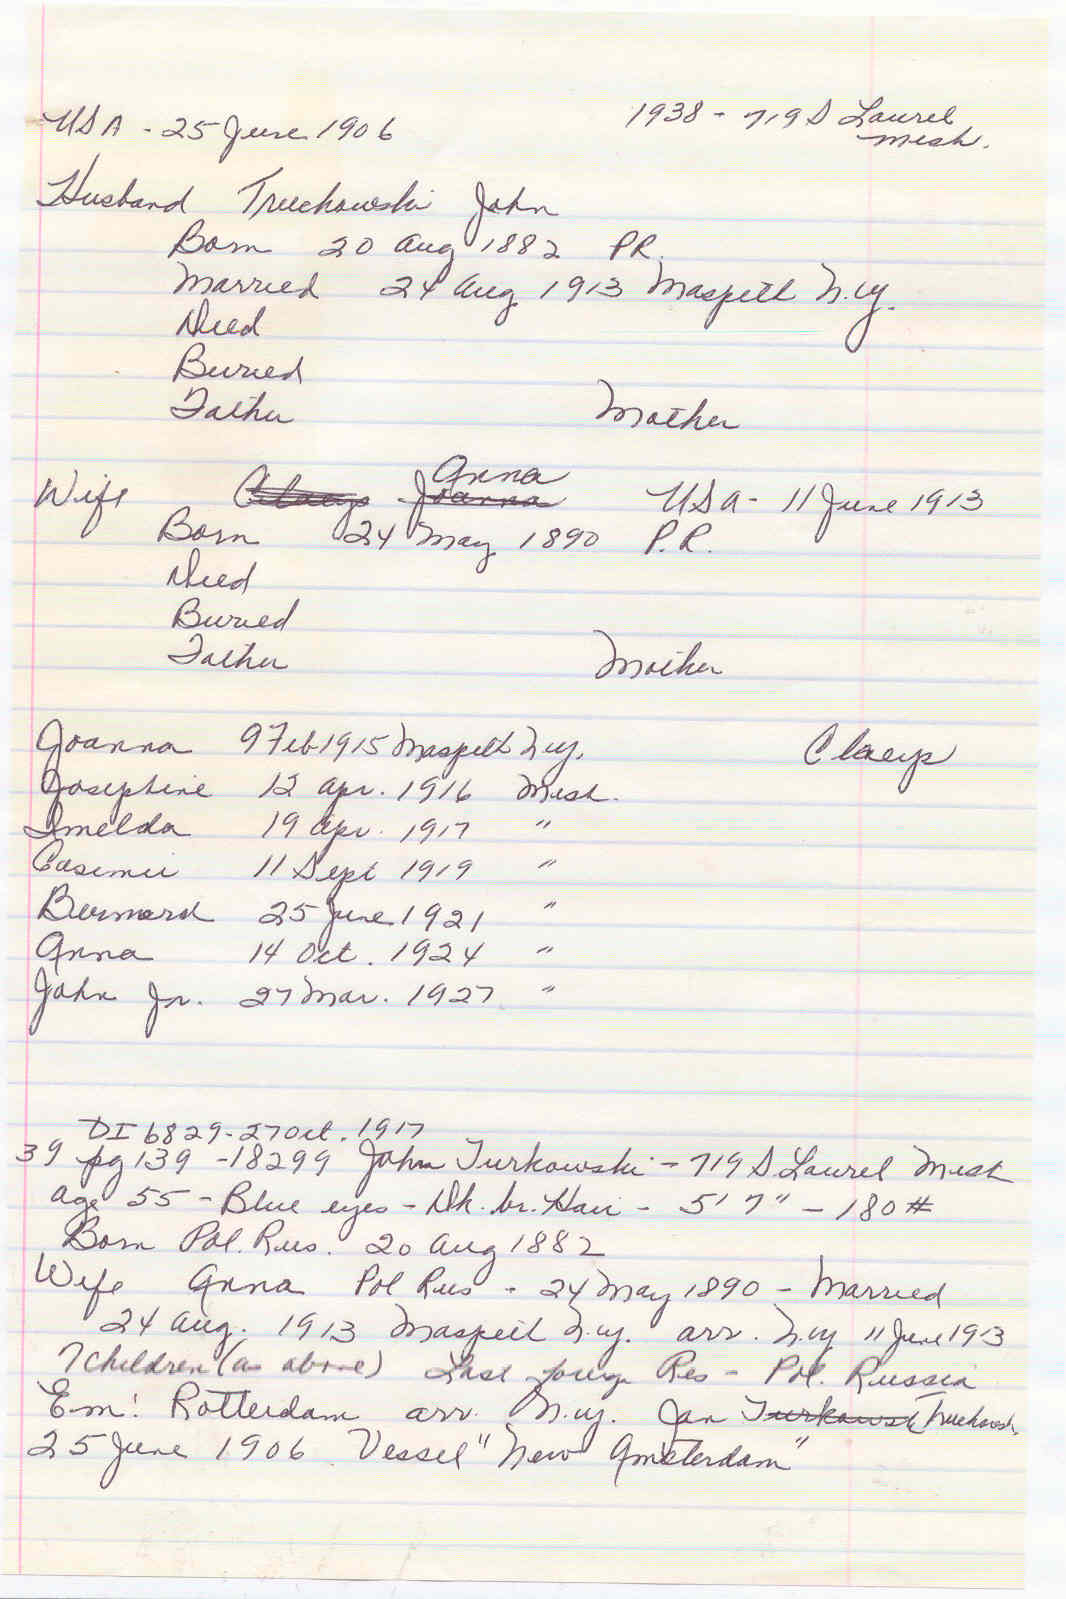 USA - 25 June 1906 1938 - 719 S Laurel
Mish.
Husband Truchowski John
Born 20 Aug 1882 P.R.
Married 24 Aug 1913 Maspeth N.Y.
Died
Buried
Father Mother
Anna
Wife Claeys Joanna USA - 11 June 1913
Born 24 May 1890 P.R.
Died
Buried
Father Mother
Joanna 9 Feb 1915 Maspeth N.Y. Claeys
Josephine 12 Apr. 1916 Mish.
Imelda 19 Apr. 1917 "
Casimir 11 Sept 1919 "
Bernard 25 June 1921 "
Anna 14 Oct. 1924 "
John Jr. 27 Mar. 1927 "
DI 6829 - 27 Oct. 1917
39 pg 139 - 18299 John Turkowski - 719 S Laurel Mish
age 55 - Blue eyes - Dk. br. Hair - 5' 7" - 180 #
Born Pol. Rus. 20 Aug 1882
Wife Anna Pol Rus - 24 May 1890 - Married
24 Aug. 1913 Maspeth N.Y. arr. N.Y 11 June 1913
7 children (as above) Last foreign Res - Pol. Russia
Em: Rotterdam arr. N.Y. Jan Turkowski Truchowski
25 June 1906 Vessel "New Amsterdam"